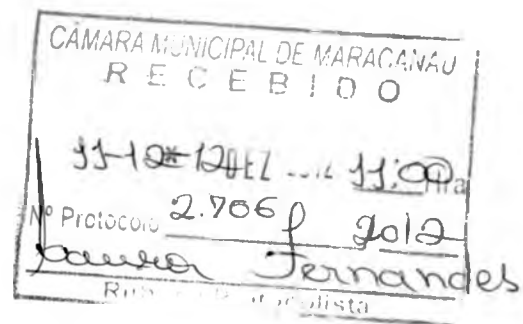 CÂMARA MUNICIPAL DE MARACANAU
RECEBIDO
11-12-12 DEZ 11:00 Hra
Nº Protocolo 2.706 2012
Fernandes